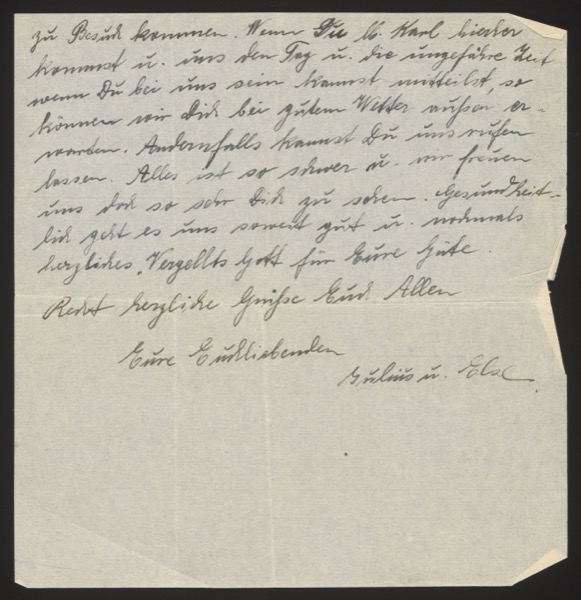 zu Besuch kommen. Wenn Du lb. Karl hierher
kommst u. uns den Tag u. die ungefähre Zeit
wenn Du bei uns sein kannst mitteilst, so
können wir Dich bei gutem Wetter außen er-
warten. Andernfalls kannst Du uns rufen
lassen. Alles ist so schwer u. wir freuen
uns doch so sehr Dich zu sehen. Gesundheit-
lich geht es uns soweit gut u. nochmals
herzliches „Vergellts Gott für Eure Güte.
Recht herzliche Grüße Euch Allen
Eure Euchliebenden
Julius u. Else